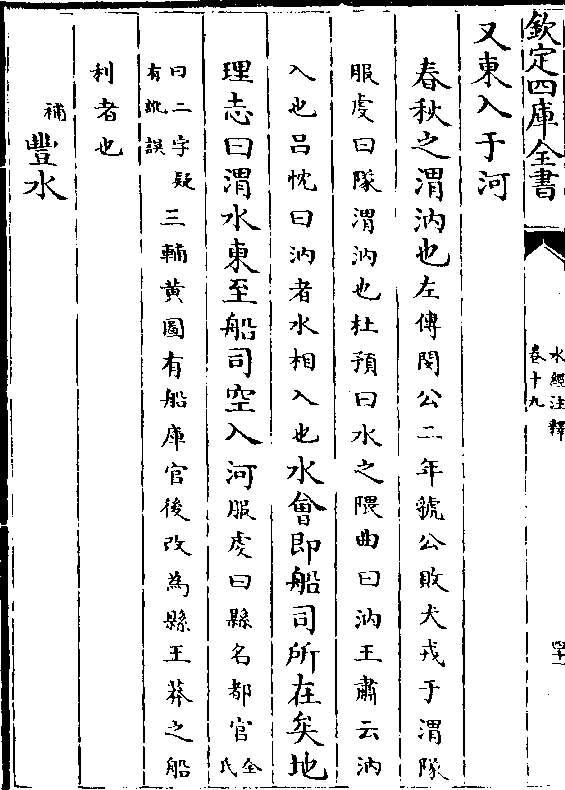 欽定四庫全書
水經注釋
卷十九
四十一
又東入于河
春秋之渭汭也左傳閔公二年虢公敗犬戎于渭隊
服虔曰隊渭汭也杜預曰水之隈曲曰汭王肅云汭
入也吕忱曰汭者水相入也水會即船司所在矣地
理志曰渭水東至船司空入河服虔曰縣名都官全氏
曰二字疑有訛誤三輔黄圖有船庫官後改為縣王莽之船
利者也
補豐水